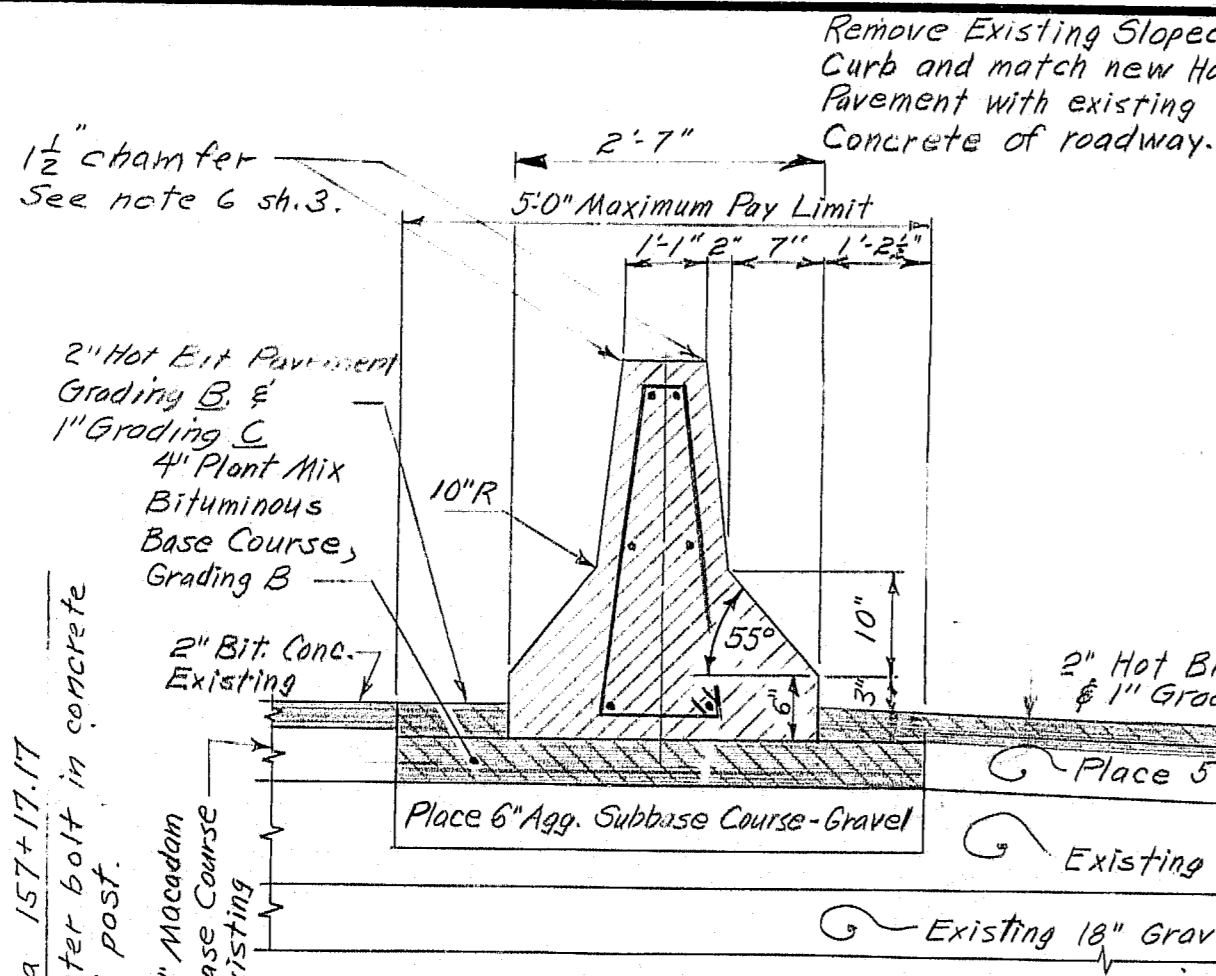 Remove Existing Sloped
Curb and match new
Pavement with existing
Concrete of roadway.
1½" chamfer
See note 6 sh.3.
2'-7"
5'-0" Maximum Pay Limit
1'-1" 2" 7" 1'-2½"
2" Hot Bit Pavement
Grading B. &
1" Grading C
4" Plant Mix
Bituminous
Base Course,
Grading B
10"R
2" Bit. Conc.
Existing
55°
10"
3"
6"
2" Hot
& 1"
Place 5
Place 6" Agg. Subbase Course-Gravel
Existing
Existing 18"
157+17.17
bolt in concrete
post.
Macadam
Course